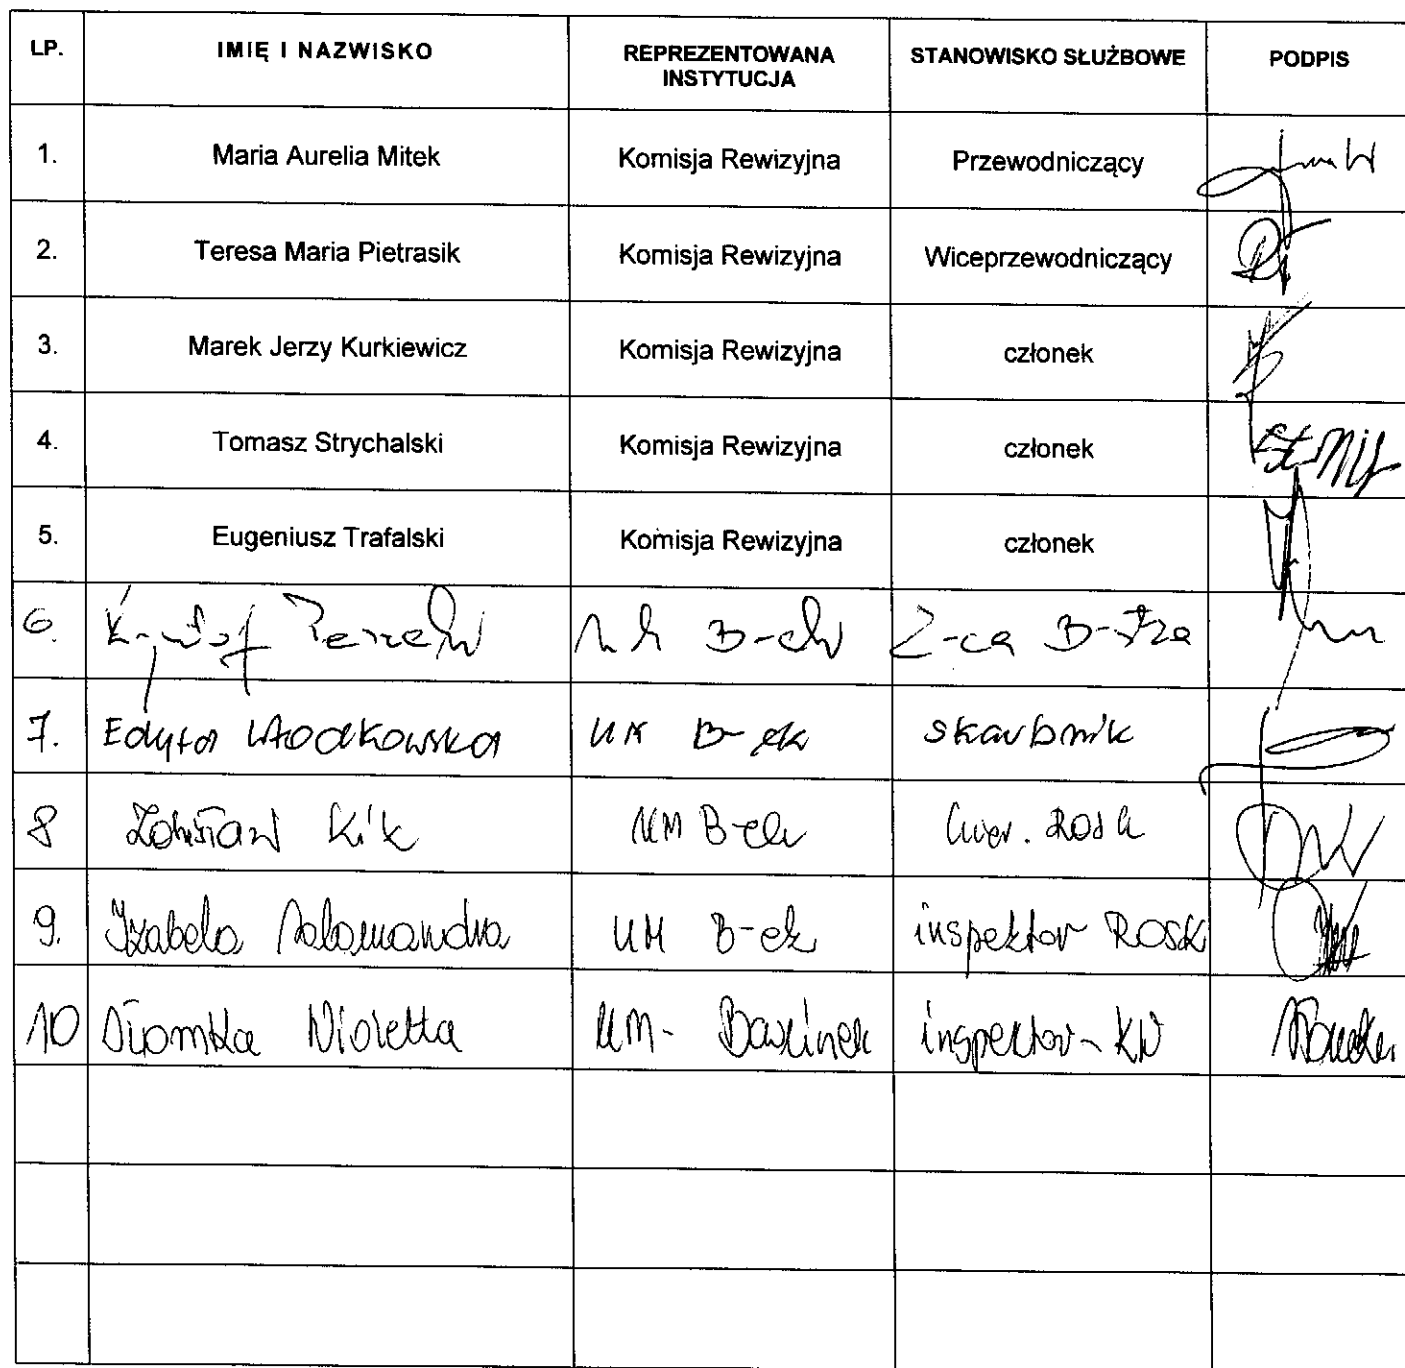 LP. IMIĘ I NAZWISKO REPREZENTOWANA INSTYTUCJA STANOWISKO SŁUŻBOWE PODPIS
1. Maria Aurelia Mitek Komisja Rewizyjna Przewodniczący
2. Teresa Maria Pietrasik Komisja Rewizyjna Wiceprzewodniczący
3. Marek Jerzy Kurkiewicz Komisja Rewizyjna członek
4. Tomasz Strychalski Komisja Rewizyjna członek
5. Eugeniusz Trafalski Komisja Rewizyjna członek
6. Z-ca B-stza
7. Edyta Włodkowska UM B-ek skarbnik
8 Zdzisław Kik UM B-ek
9. Izabela Salamandra UM B-ek inspektor ROSK
10 Słomka Wioletta UM- Barlinek inspektor-